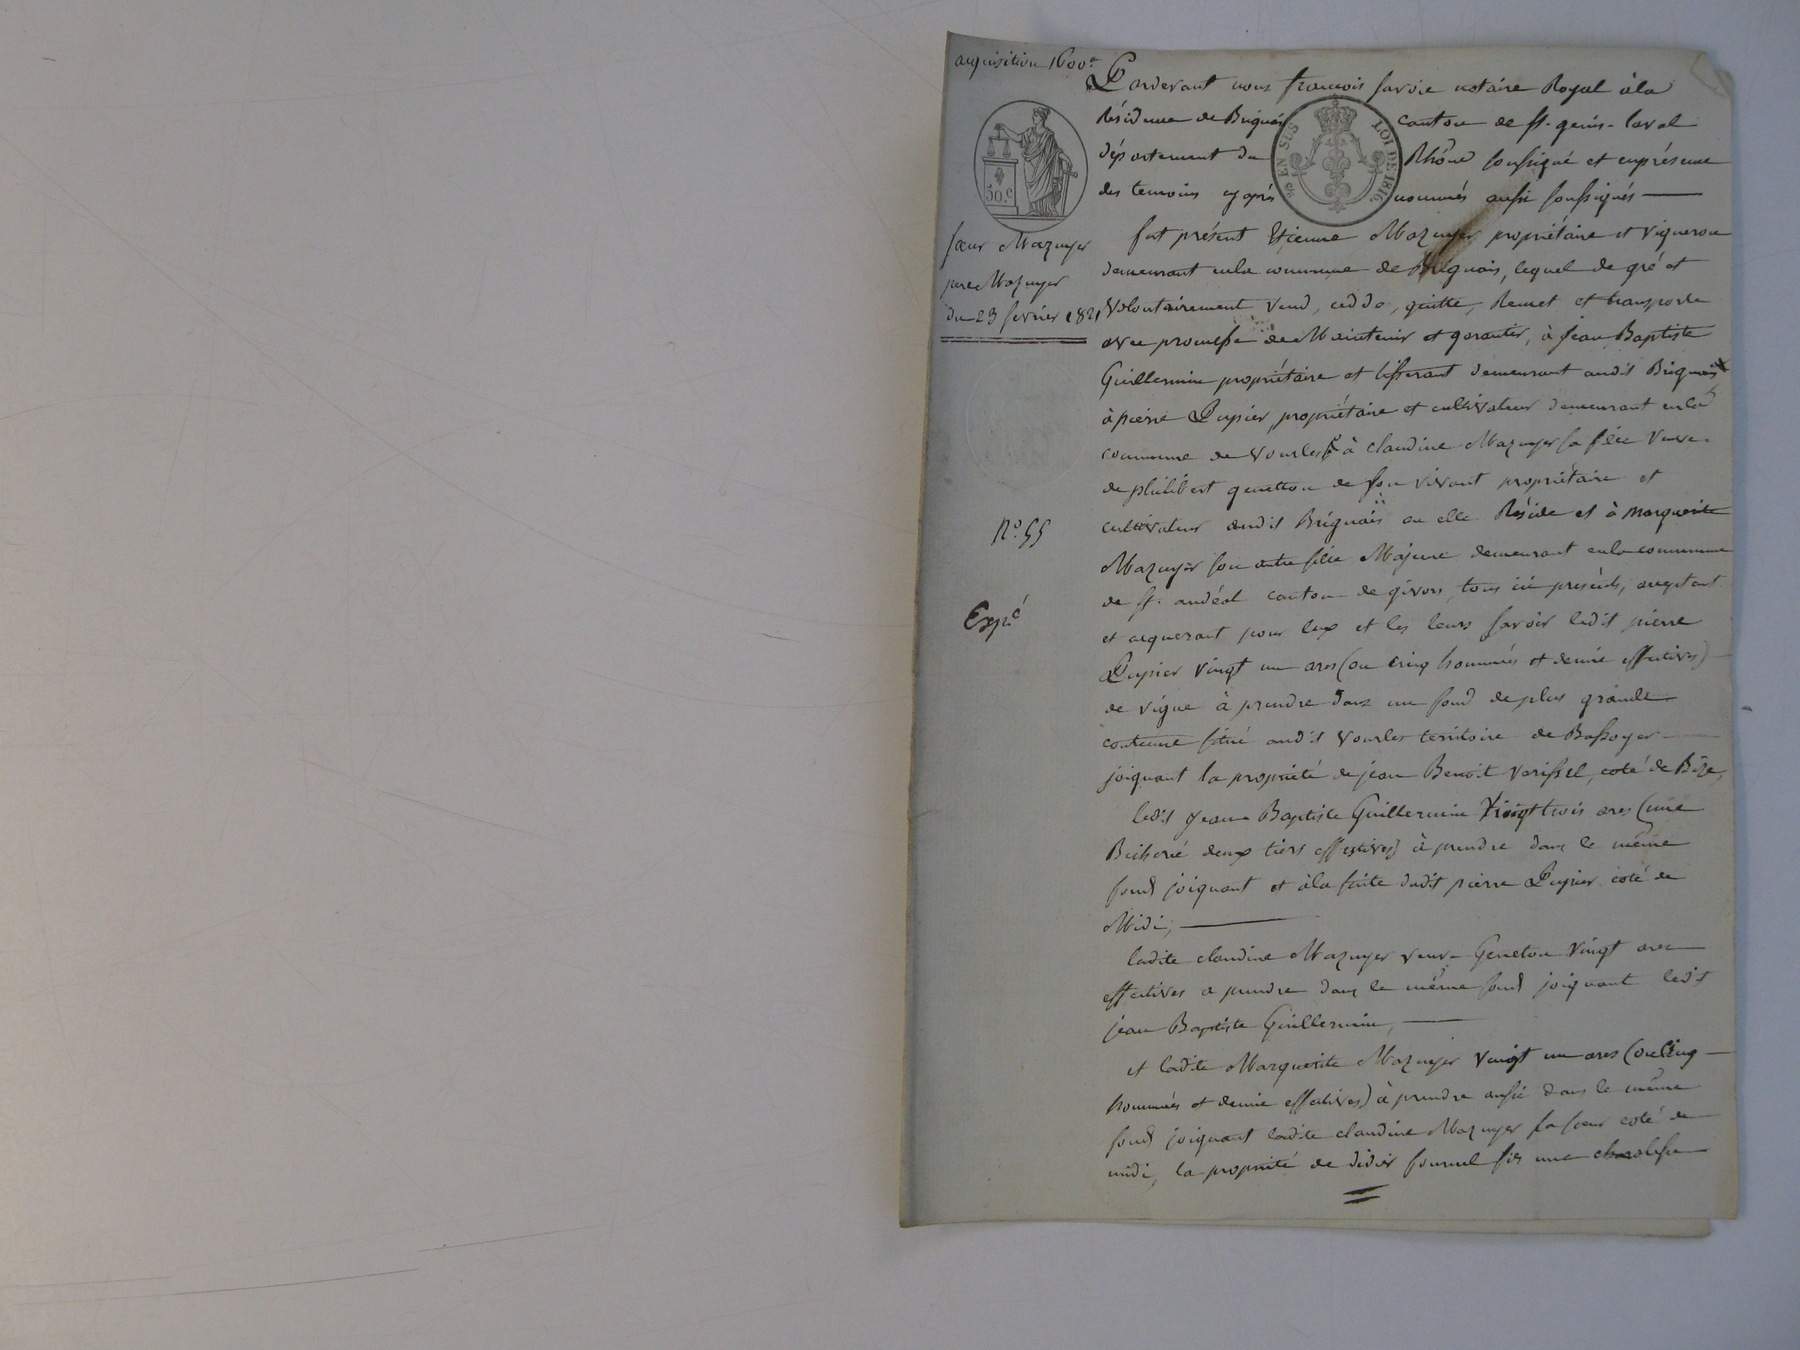 acquisition 1600f
Pardevant nous françois favoie notaire Royal àla
Résidence de Brignais canton de st. genis-laval
département du Rhône soussigné et enprésence
des temoins cyaprès nommés aussi soussignés
50.c
EN SUS
LOI DE 1816
sœur Mazuyer
père Mazuyer
du 23 février 1821
N.° 55
Exp.é
fut présent Etienne Mazuyer propriétaire et vigneron
demeurant enla commune de Brignais, lequel de gré et
Volontairement vend, cedde, quitte, Remet et transporte
avec promesse de Maintenir et garantir, à Jean Baptiste
Guillermin propriétaire et tisserant demeurant audit Brignais
à pierre Dupier, propriétaire et cultivateur demeurant enla
commune de Vourles à claudine Mazuyer sa fille veuve
de philibert genetton de son vivant propriétaire et
cultivateur audit Brignais ou elle Réside et à Marguerite
Mazuyer son autre fille Majeure demeurant enla commune
de st. andéol canton de givors, tous ici présents, aceptant
et acquerant pour eux et les leurs savoir ledit pierre
Dupier vingt un ares (ou cinq hommés et demie effectives)
de vigne à prendre dans un fond de plus grande
contenue situé audit Vourles territoire de Bassoyer
joignant la propriété de jean Benoit Verissel, coté de Bize,
ledit Jean Baptiste Guillermin Vingt trois ares (une
Bicherée deux tiers effectives) à prendre dans le même
fond joignant et àla suite dudit pierre Dupier coté de
Midi,
ladite claudine Mazuyer veuve Genetton Vingt ares
effectives a prendre dans le même fond joignant ledit
jean Baptiste Guillermin,
et ladite Marguerite Mazuyer vingt un ares (ou cinq
hommés et demie effectives) à prendre aussi dans le même
fond joignant ladite claudine Mazuyer sa sœur coté de
midi, la propriété de didier fournel une